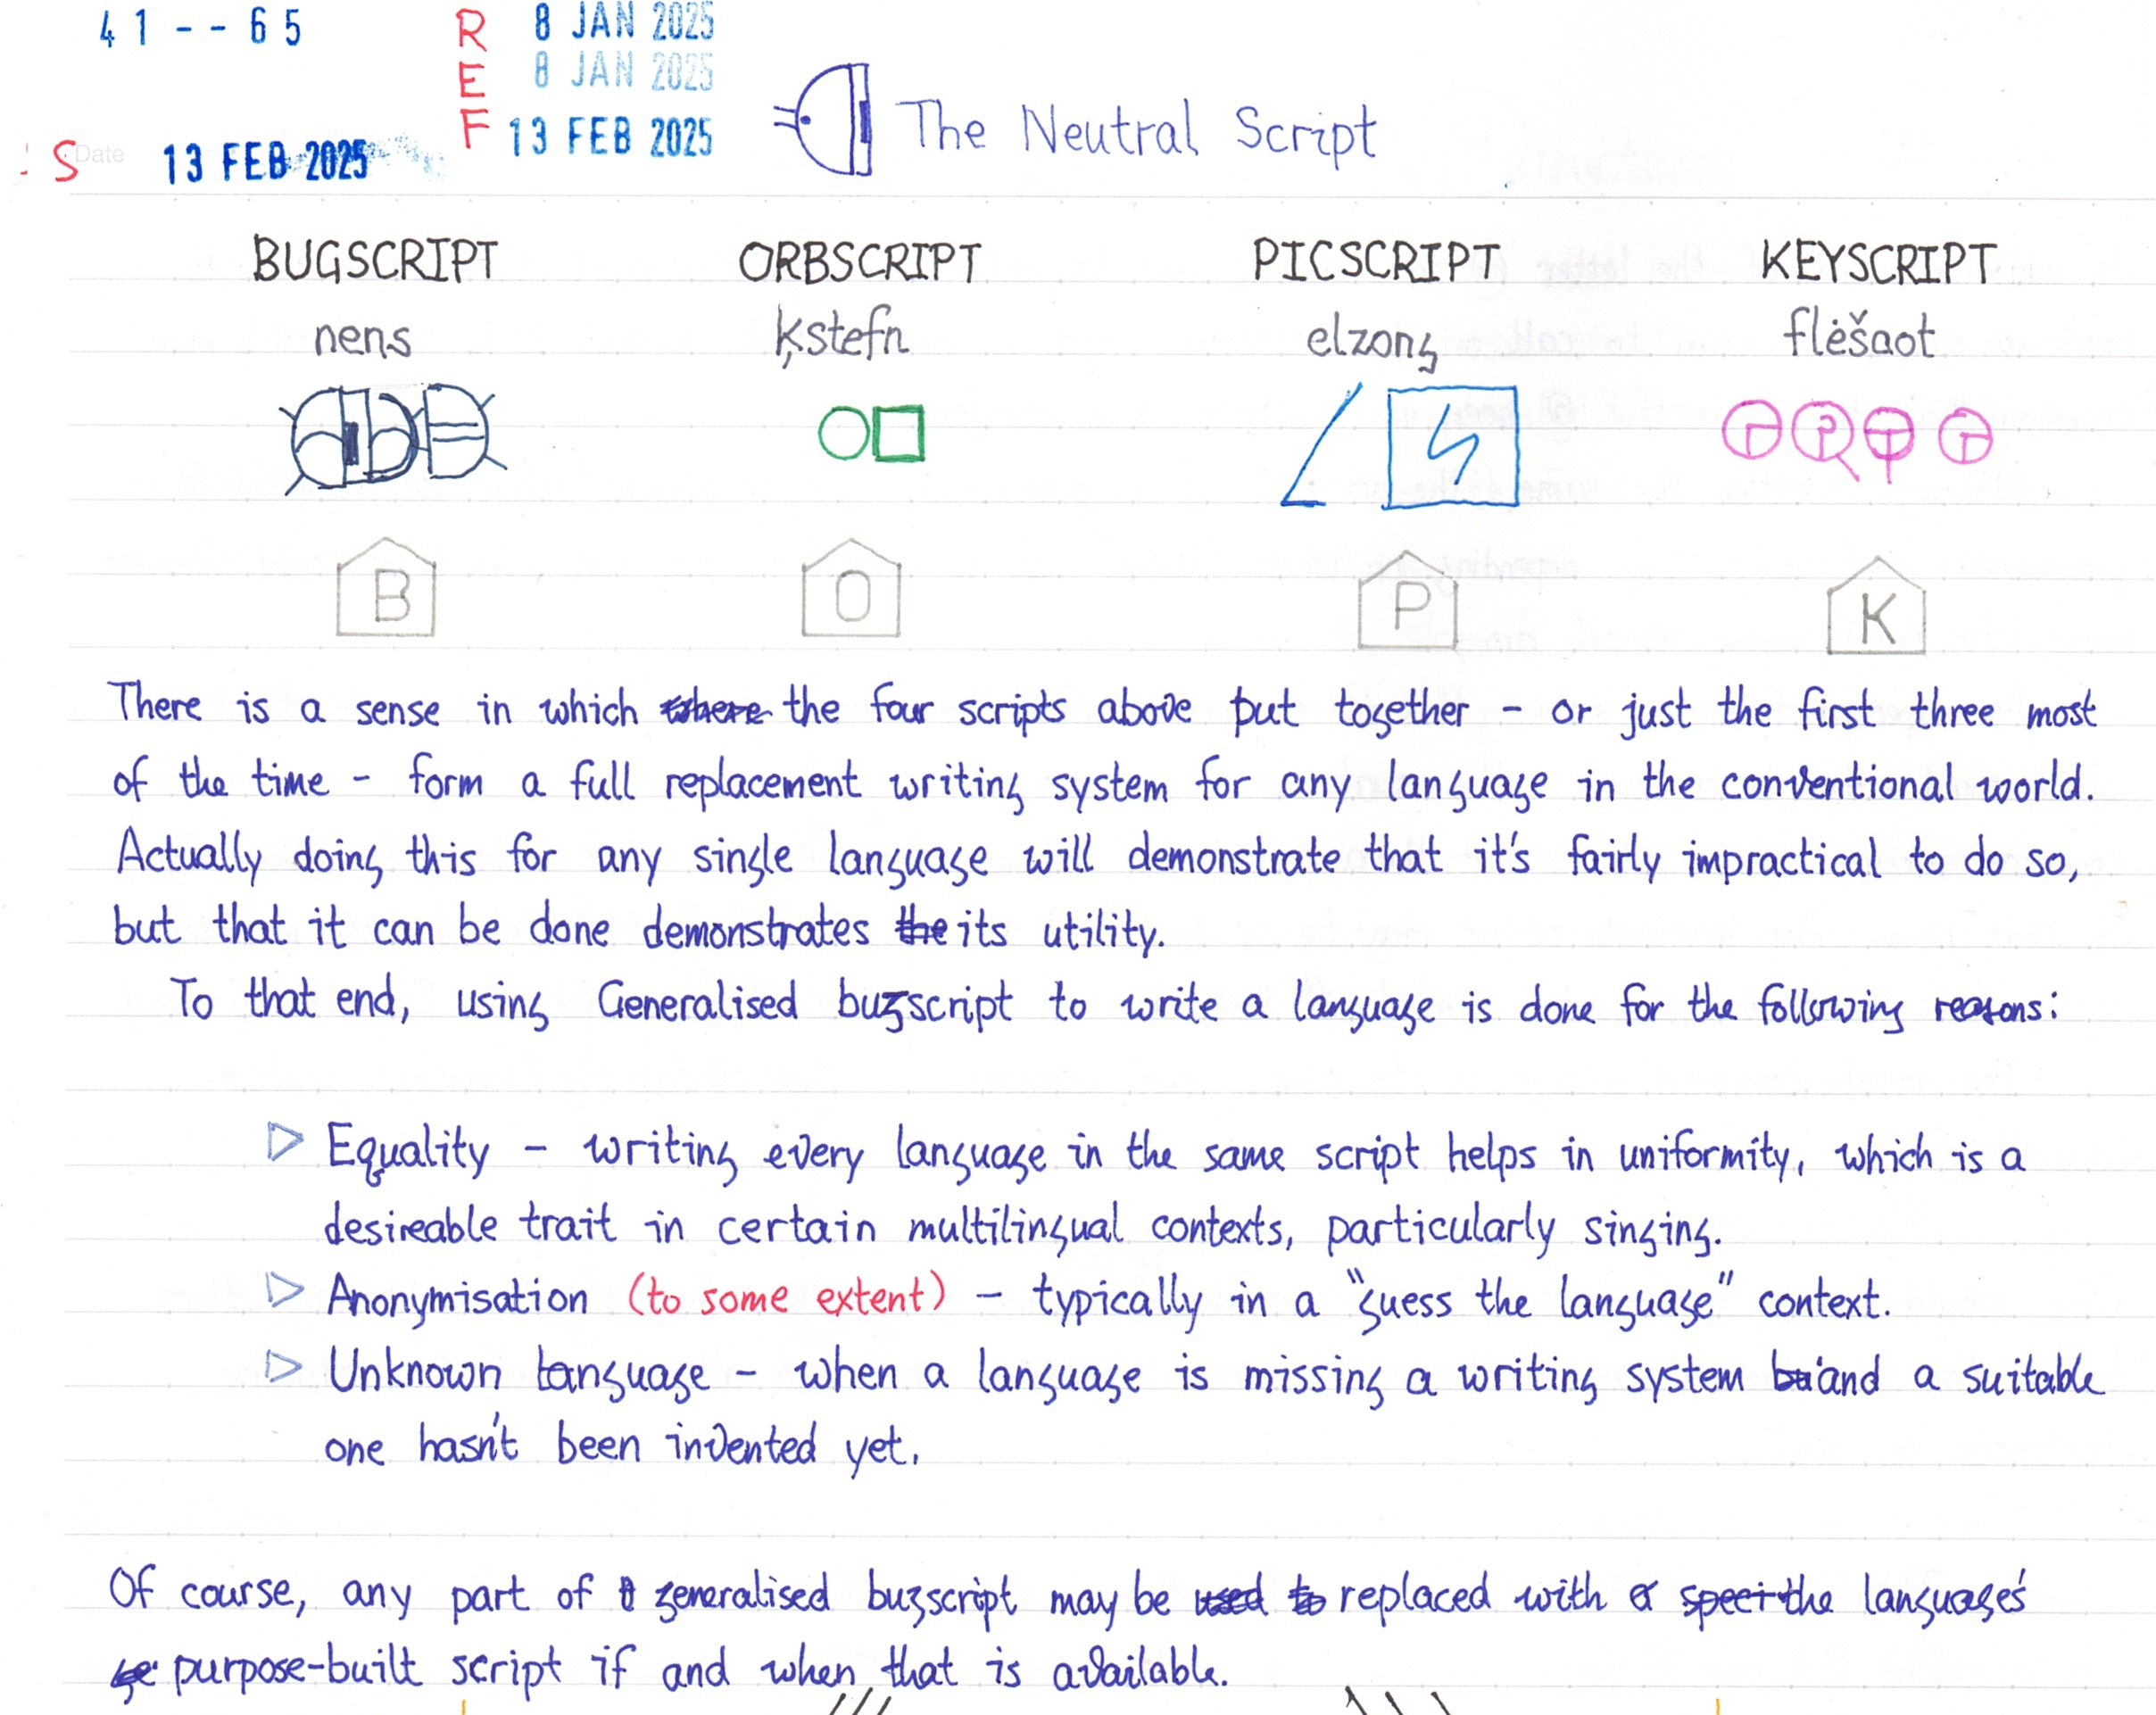 41--65
REF
8 JAN 2025
8 JAN 2025
13 FEB 2025
S Date 13 FEB 2025
The Neutral Script
BUGSCRIPT ORBSCRIPT PICSCRIPT KEYSCRIPT
nens ķstefn elzong flėšaot
B O P K
There is a sense in which where the four scripts above put together - or just the first three most
of the time - form a full replacement writing system for any language in the conventional world.
Actually doing this for any single language will demonstrate that it's fairly impractical to do so,
but that it can be done demonstrates the its utility.
To that end, using Generalised bugscript to write a language is done for the following reasons:
▷ Equality - writing every language in the same script helps in uniformity, which is a
desireable trait in certain multilingual contexts, particularly singing.
▷ Anonymisation (to some extent) - typically in a "guess the language" context.
▷ Unknown language - when a language is missing a writing system and a suitable
one hasn't been invented yet.
Of course, any part of generalised bugscript may be used to replaced with a the language's
purpose-built script if and when that is available.